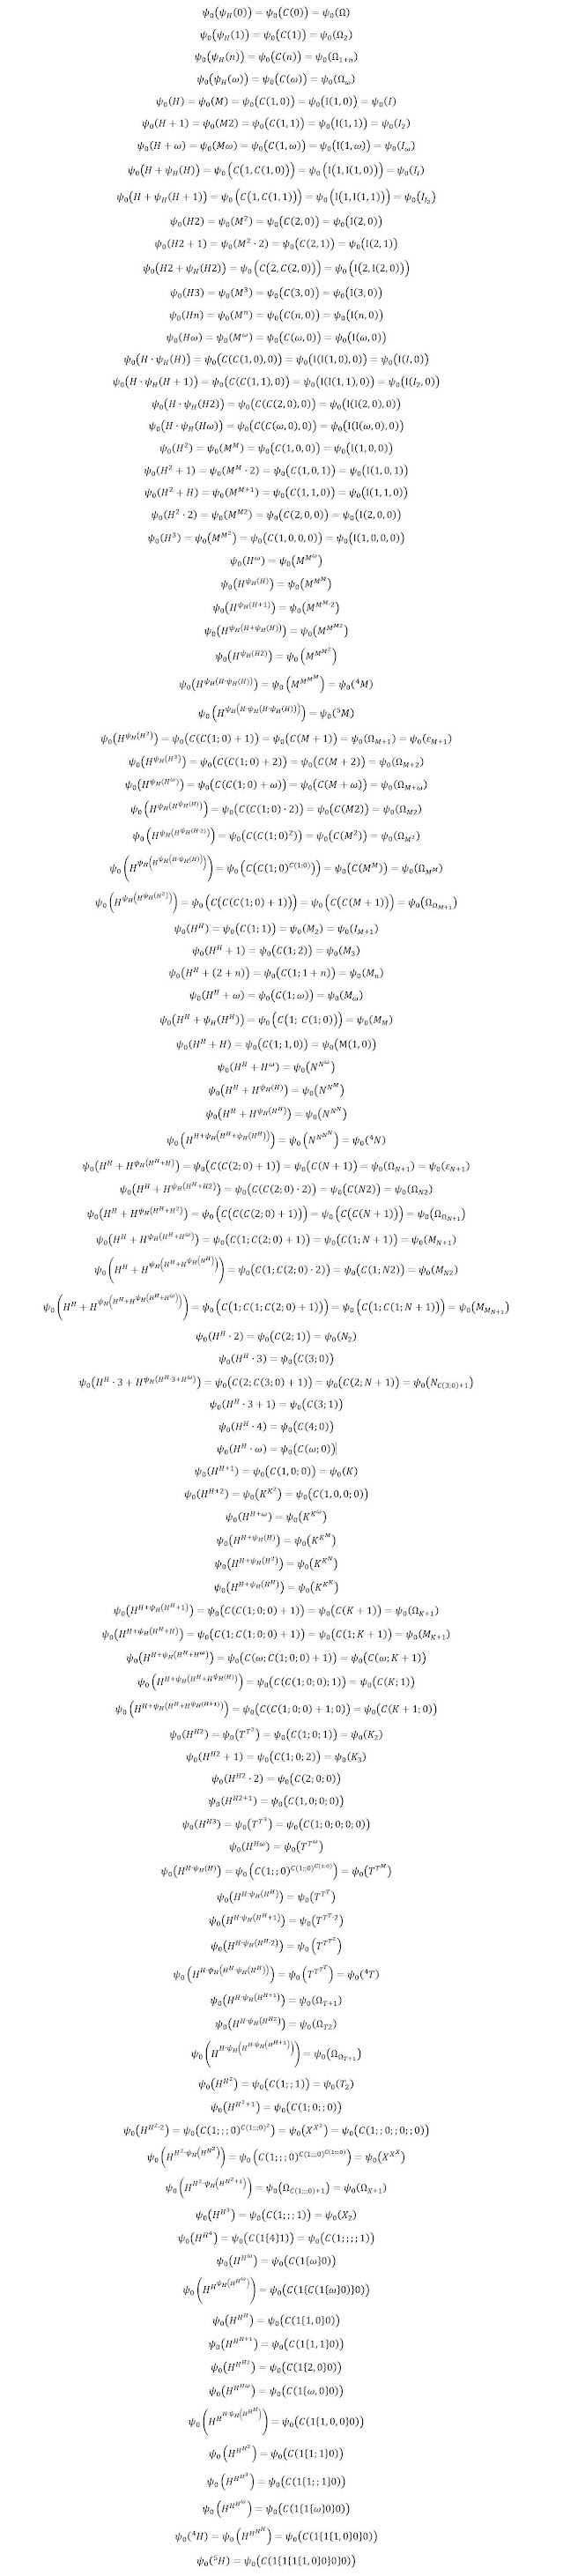 ψ₀(ψ_H(0)) = ψ₀(C(0)) = ψ₀(Ω)
ψ₀(ψ_H(1)) = ψ₀(C(1)) = ψ₀(Ω₂)
ψ₀(ψ_H(n)) = ψ₀(C(n)) = ψ₀(Ω_{1+n})
ψ₀(ψ_H(ω)) = ψ₀(C(ω)) = ψ₀(Ω_ω)
ψ₀(H) = ψ₀(M) = ψ₀(C(1,0)) = ψ₀(I(1,0)) = ψ₀(I)
ψ₀(H + 1) = ψ₀(M2) = ψ₀(C(1,1)) = ψ₀(I(1,1)) = ψ₀(I₂)
ψ₀(H + ω) = ψ₀(Mω) = ψ₀(C(1,ω)) = ψ₀(I(1,ω)) = ψ₀(I_ω)
ψ₀(H + ψ_H(H)) = ψ₀(C(1,C(1,0))) = ψ₀(I(1,I(1,0))) = ψ₀(I_I)
ψ₀(H + ψ_H(H + 1)) = ψ₀(C(1,C(1,1))) = ψ₀(I(1,I(1,1))) = ψ₀(I_{I₂})
ψ₀(H2) = ψ₀(M^2) = ψ₀(C(2,0)) = ψ₀(I(2,0))
ψ₀(H2 + 1) = ψ₀(M^2 · 2) = ψ₀(C(2,1)) = ψ₀(I(2,1))
ψ₀(H2 + ψ_H(H2)) = ψ₀(C(2,C(2,0))) = ψ₀(I(2,I(2,0)))
ψ₀(H3) = ψ₀(M^3) = ψ₀(C(3,0)) = ψ₀(I(3,0))
ψ₀(Hn) = ψ₀(M^n) = ψ₀(C(n,0)) = ψ₀(I(n,0))
ψ₀(Hω) = ψ₀(M^ω) = ψ₀(C(ω,0)) = ψ₀(I(ω,0))
ψ₀(H · ψ_H(H)) = ψ₀(C(C(1,0),0)) = ψ₀(I(I(1,0),0)) = ψ₀(I(I,0))
ψ₀(H · ψ_H(H + 1)) = ψ₀(C(C(1,1),0)) = ψ₀(I(I(1,1),0)) = ψ₀(I(I₂,0))
ψ₀(H · ψ_H(H2)) = ψ₀(C(C(2,0),0)) = ψ₀(I(I(2,0),0))
ψ₀(H · ψ_H(Hω)) = ψ₀(C(C(ω,0),0)) = ψ₀(I(I(ω,0),0))
ψ₀(H^2) = ψ₀(M^M) = ψ₀(C(1,0,0)) = ψ₀(I(1,0,0))
ψ₀(H^2 + 1) = ψ₀(M^M · 2) = ψ₀(C(1,0,1)) = ψ₀(I(1,0,1))
ψ₀(H^2 + H) = ψ₀(M^{M+1}) = ψ₀(C(1,1,0)) = ψ₀(I(1,1,0))
ψ₀(H^2 · 2) = ψ₀(M^{M2}) = ψ₀(C(2,0,0)) = ψ₀(I(2,0,0))
ψ₀(H^3) = ψ₀(M^{M^2}) = ψ₀(C(1,0,0,0)) = ψ₀(I(1,0,0,0))
ψ₀(H^ω) = ψ₀(M^{M^ω})
ψ₀(H^{ψ_H(H)}) = ψ₀(M^{M^M})
ψ₀(H^{ψ_H(H+1)}) = ψ₀(M^{M^M·2})
ψ₀(H^{ψ_H(H+ψ_H(H))}) = ψ₀(M^{M^{M2}})
ψ₀(H^{ψ_H(H2)}) = ψ₀(M^{M^{M^2}})
ψ₀(H^{ψ_H(H·ψ_H(H))}) = ψ₀(M^{M^{M^M}}) = ψ₀(⁴M)
ψ₀(H^{ψ_H(H·ψ_H(H·ψ_H(H)))}) = ψ₀(⁵M)
ψ₀(H^{ψ_H(H^2)}) = ψ₀(C(C(1;0) + 1)) = ψ₀(C(M + 1)) = ψ₀(Ω_{M+1}) = ψ₀(ε_{M+1})
ψ₀(H^{ψ_H(H^3)}) = ψ₀(C(C(1;0) + 2)) = ψ₀(C(M + 2)) = ψ₀(Ω_{M+2})
ψ₀(H^{ψ_H(H^ω)}) = ψ₀(C(C(1;0) + ω)) = ψ₀(C(M + ω)) = ψ₀(Ω_{M+ω})
ψ₀(H^{ψ_H(H^{ψ_H(H)})}) = ψ₀(C(C(1;0) · 2)) = ψ₀(C(M2)) = ψ₀(Ω_{M2})
ψ₀(H^{ψ_H(H^{ψ_H(H·2)})}) = ψ₀(C(C(1;0)^2)) = ψ₀(C(M^2)) = ψ₀(Ω_{M^2})
ψ₀(H^{ψ_H(H^{ψ_H(H·ψ_H(H))})}) = ψ₀(C(C(1;0)^{C(1;0)})) = ψ₀(C(M^M)) = ψ₀(Ω_{M^M})
ψ₀(H^{ψ_H(H^{ψ_H(H^2)})}) = ψ₀(C(C(C(1;0) + 1))) = ψ₀(C(C(M + 1))) = ψ₀(Ω_{Ω_{M+1}})
ψ₀(H^H) = ψ₀(C(1;1)) = ψ₀(M₂) = ψ₀(I_{M+1})
ψ₀(H^H + 1) = ψ₀(C(1;2)) = ψ₀(M₃)
ψ₀(H^H + (2 + n)) = ψ₀(C(1;1 + n)) = ψ₀(M_n)
ψ₀(H^H + ω) = ψ₀(C(1;ω)) = ψ₀(M_ω)
ψ₀(H^H + ψ_H(H^H)) = ψ₀(C(1; C(1;0))) = ψ₀(M_M)
ψ₀(H^H + H) = ψ₀(C(1;1,0)) = ψ₀(M(1,0))
ψ₀(H^H + H^ω) = ψ₀(N^{N^ω})
ψ₀(H^H + H^{ψ_H(H)}) = ψ₀(N^{N^M})
ψ₀(H^H + H^{ψ_H(H^H)}) = ψ₀(N^{N^N})
ψ₀(H^{H+ψ_H(H^H+ψ_H(H^H))}) = ψ₀(N^{N^{N^N}}) = ψ₀(⁴N)
ψ₀(H^H + H^{ψ_H(H^H+H)}) = ψ₀(C(C(2;0) + 1)) = ψ₀(C(N + 1)) = ψ₀(Ω_{N+1}) = ψ₀(ε_{N+1})
ψ₀(H^H + H^{ψ_H(H^H+H2)}) = ψ₀(C(C(2;0) · 2)) = ψ₀(C(N2)) = ψ₀(Ω_{N2})
ψ₀(H^H + H^{ψ_H(H^H+H^2)}) = ψ₀(C(C(C(2;0) + 1))) = ψ₀(C(C(N + 1))) = ψ₀(Ω_{Ω_{N+1}})
ψ₀(H^H + H^{ψ_H(H^H+H^ω)}) = ψ₀(C(1;C(2;0) + 1)) = ψ₀(C(1;N + 1)) = ψ₀(M_{N+1})
ψ₀(H^H + H^{ψ_H(H^H+H^{ψ_H(H^H)})}) = ψ₀(C(1;C(2;0) · 2)) = ψ₀(C(1;N2)) = ψ₀(M_{N2})
ψ₀(H^H + H^{ψ_H(H^H+H^{ψ_H(H^H+H^ω)})}) = ψ₀(C(1;C(1;C(2;0) + 1))) = ψ₀(C(1;C(1;N + 1))) = ψ₀(M_{M_{N+1}})
ψ₀(H^H · 2) = ψ₀(C(2;1)) = ψ₀(N₂)
ψ₀(H^H · 3) = ψ₀(C(3;0))
ψ₀(H^H · 3 + H^{ψ_H(H^H·3+H^ω)}) = ψ₀(C(2;C(3;0) + 1)) = ψ₀(C(2;N + 1)) = ψ₀(N_{C(3;0)+1})
ψ₀(H^H · 3 + 1) = ψ₀(C(3;1))
ψ₀(H^H · 4) = ψ₀(C(4;0))
ψ₀(H^H · ω) = ψ₀(C(ω;0))
ψ₀(H^{H+1}) = ψ₀(C(1,0;0)) = ψ₀(K)
ψ₀(H^{H+2}) = ψ₀(K^{K^2}) = ψ₀(C(1,0,0;0))
ψ₀(H^{H+ω}) = ψ₀(K^{K^ω})
ψ₀(H^{H+ψ_H(H)}) = ψ₀(K^{K^M})
ψ₀(H^{H+ψ_H(H^2)}) = ψ₀(K^{K^N})
ψ₀(H^{H+ψ_H(H^H)}) = ψ₀(K^{K^K})
ψ₀(H^{H+ψ_H(H^H+1)}) = ψ₀(C(C(1;0;0) + 1)) = ψ₀(C(K + 1)) = ψ₀(Ω_{K+1})
ψ₀(H^{H+ψ_H(H^H+H)}) = ψ₀(C(1;C(1;0;0) + 1)) = ψ₀(C(1;K + 1)) = ψ₀(M_{K+1})
ψ₀(H^{H+ψ_H(H^H+H^ω)}) = ψ₀(C(ω;C(1;0;0) + 1)) = ψ₀(C(ω;K + 1))
ψ₀(H^{H+ψ_H(H^H+H^{ψ_H(H)})}) = ψ₀(C(C(1;0;0);1)) = ψ₀(C(K;1))
ψ₀(H^{H+ψ_H(H^H+H^{ψ_H(H+1)})}) = ψ₀(C(C(1;0;0) + 1;0)) = ψ₀(C(K + 1;0))
ψ₀(H^{H2}) = ψ₀(T^{T^2}) = ψ₀(C(1;0;1)) = ψ₀(K₂)
ψ₀(H^{H2} + 1) = ψ₀(C(1;0;2)) = ψ₀(K₃)
ψ₀(H^{H2} · 2) = ψ₀(C(2;0;0))
ψ₀(H^{H2+1}) = ψ₀(C(1,0;0;0))
ψ₀(H^{H3}) = ψ₀(T^{T^3}) = ψ₀(C(1;0;0;0;0))
ψ₀(H^{Hω}) = ψ₀(T^{T^ω})
ψ₀(H^{H·ψ_H(H)}) = ψ₀(C(1;;0)^{C(1;;0)^{C(1;0)}}) = ψ₀(T^{T^M})
ψ₀(H^{H·ψ_H(H^H)}) = ψ₀(T^{T^T})
ψ₀(H^{H·ψ_H(H^H+1)}) = ψ₀(T^{T^{T·2}})
ψ₀(H^{H·ψ_H(H^H·2)}) = ψ₀(T^{T^{T^2}})
ψ₀(H^{H·ψ_H(H^H·ψ_H(H^H))}) = ψ₀(T^{T^{T^T}}) = ψ₀(⁴T)
ψ₀(H^{H·ψ_H(H^{H+1})}) = ψ₀(Ω_{T+1})
ψ₀(H^{H·ψ_H(H^{H2})}) = ψ₀(Ω_{T2})
ψ₀(H^{H·ψ_H(H^{H·ψ_H(H^{H+1})})}) = ψ₀(Ω_{Ω_{T+1}})
ψ₀(H^{H^2}) = ψ₀(C(1;;1)) = ψ₀(T₂)
ψ₀(H^{H^2+1}) = ψ₀(C(1;0;;0))
ψ₀(H^{H^2·2}) = ψ₀(C(1;;;0)^{C(1;;;0)^2}) = ψ₀(X^{X^2}) = ψ₀(C(1;;0;;0;;0))
ψ₀(H^{H^2·ψ_H(H^{H^2})}) = ψ₀(C(1;;;0)^{C(1;;;0)^{C(1;;;0)}}) = ψ₀(X^{X^X})
ψ₀(H^{H^2·ψ_H(H^{H^2+1})}) = ψ₀(Ω_{C(1;;;0)+1}) = ψ₀(Ω_{X+1})
ψ₀(H^{H^3}) = ψ₀(C(1;;;1)) = ψ₀(X₂)
ψ₀(H^{H^4}) = ψ₀(C(1{4}1)) = ψ₀(C(1;;;;1))
ψ₀(H^{H^ω}) = ψ₀(C(1{ω}0))
ψ₀(H^{H^{ψ_H(H^{H^ω})}}) = ψ₀(C(1{C(1{ω}0)}0))
ψ₀(H^{H^H}) = ψ₀(C(1{1,0}0))
ψ₀(H^{H^{H+1}}) = ψ₀(C(1{1,1}0))
ψ₀(H^{H^{H2}}) = ψ₀(C(1{2,0}0))
ψ₀(H^{H^{Hω}}) = ψ₀(C(1{ω,0}0))
ψ₀(H^{H^{H·ψ_H(H^{H^H})}}) = ψ₀(C(1{1,0,0}0))
ψ₀(H^{H^{H^2}}) = ψ₀(C(1{1;1}0))
ψ₀(H^{H^{H^3}}) = ψ₀(C(1{1;;1}0))
ψ₀(H^{H^{H^ω}}) = ψ₀(C(1{1{ω}0}0))
ψ₀(⁴H) = ψ₀(H^{H^{H^H}}) = ψ₀(C(1{1{1,0}0}0))
ψ₀(⁵H) = ψ₀(C(1{1{1{1,0}0}0}0))